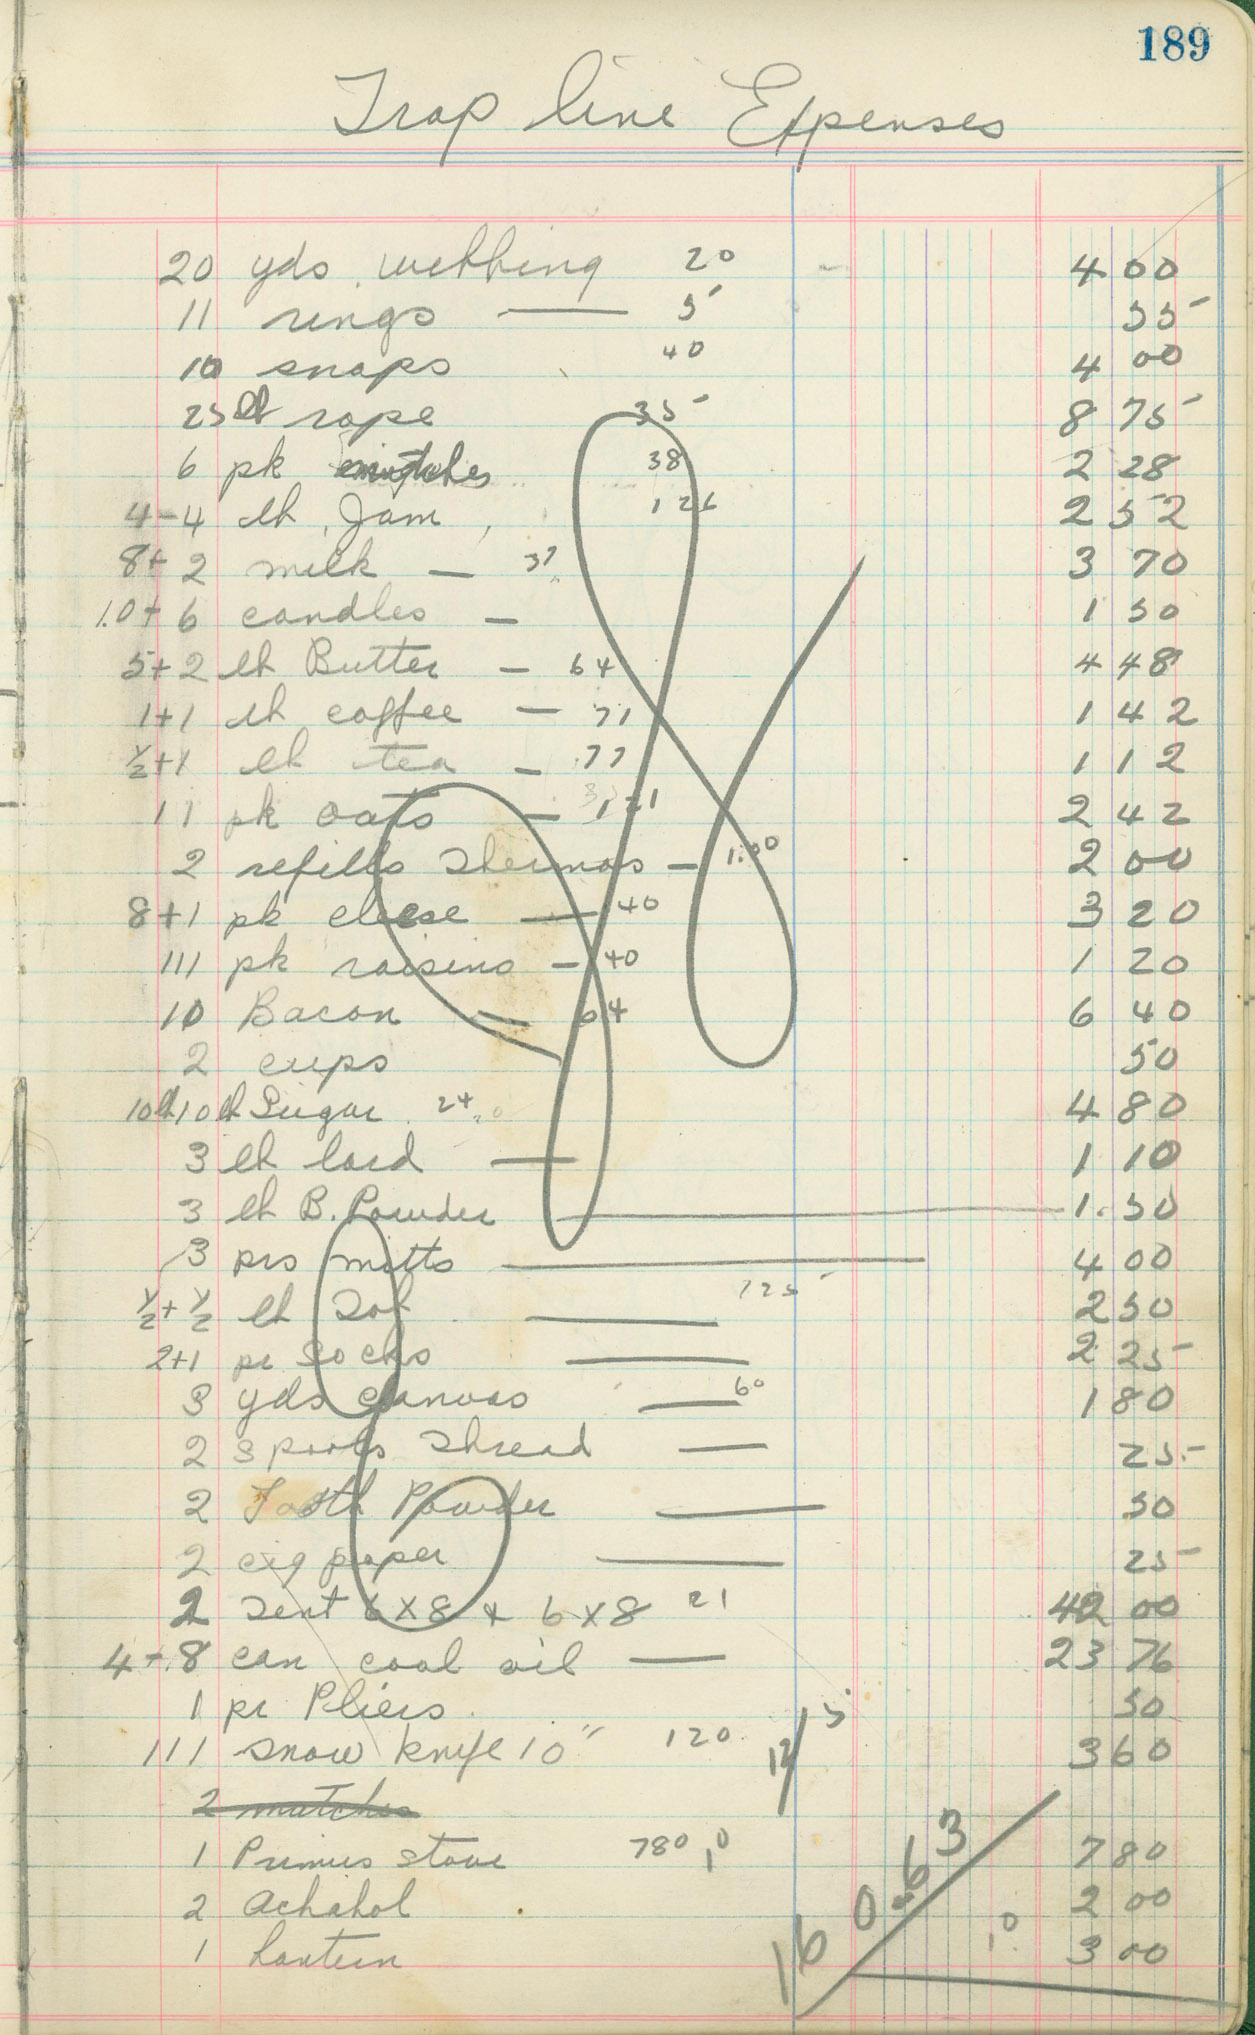 189
Trap line Expenses
20 yds webbing 20 4 00
11 rings — 5 55
10 snaps 40 4 00
25 lb rope 35 8 75
6 pk matches 38 2 28
4-4 lb Jam 126 2 52
8+2 milk — 37 3 70
10+6 candles — 1 50
5+2 lb Butter — 64 4 48
1+1 lb coffee — 71 1 42
½+1 lb tea — 77 1 12
11 pk oats — 121 2 42
2 refills Thermos — 1.00 2 00
8+1 pk cheese — 40 3 20
111 pk raisins — 40 1 20
10 Bacon — 64 6 40
2 cups 50
10lb 10 lb Sugar 24 4 80
3 lb lard — 1 10
3 lb B. Powder — 1.50
3 prs mitts — 4 00
½+½ lb — 125 2 50
2+1 pr Socks — 2 25
3 yds canvas — 60 1 80
2 spools Thread — 25
2 Tooth Powder — 50
2 cig paper — 25
2 Tent 6x8 & 6x8 21 42 00
4+8 can coal oil — 23 76
1 pr Pliers 50
111 snow knife 10" 120 3 60
12/5
2 matches
1 Primus stove 780 10 7 80
2 Achahol 2 00
1 Lantern 10 3 00
160.63